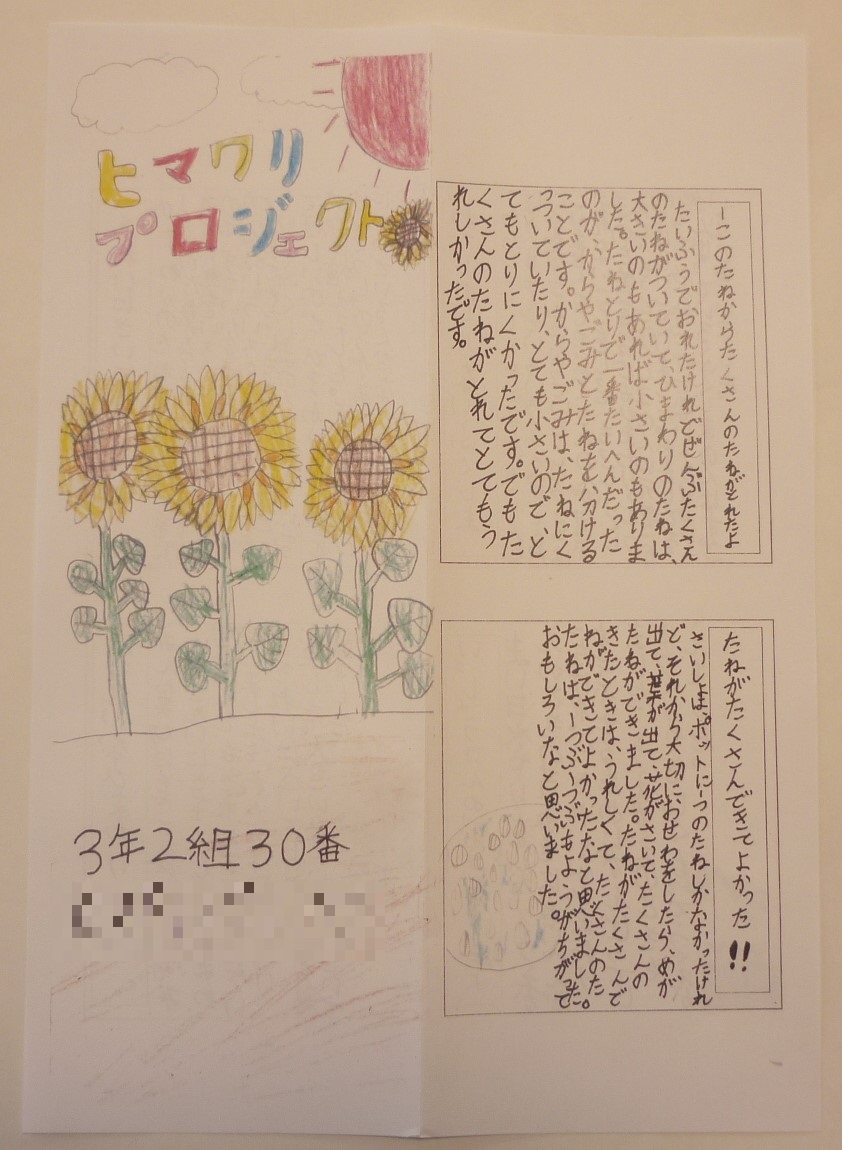 ヒマワリ
プロジェクト
3年2組30番
一このたねからたくさんのたねがとれたよ
たいふうでおれたけれどぜんぶたくさん
のたねがついていて、ひまわりのたねは、
大きいのもあれば小さいのもありま
した。たねとりで一番たいへんだった
のが、からやごみとたねを分ける
ことです。からやごみは、たねにく
っついていたり、とても小さいので、と
てもとりにくかったです。でもた
くさんのたねがとれてとてもう
れしかったです。
たねがたくさんできてよかった!!
さいしょは、ポットに一つのたねしかなかったけれ
ど、それから大切におせわをしたら、めが
出て、葉が出て、花がさいて、たくさんの
たねができました。たねがたくさんで
きたときは、うれしくて、たくさんのた
ねができてよかったなと思いました。
たねは、一つぶ一つぶもようがちがって
おもしろいなと思いました。